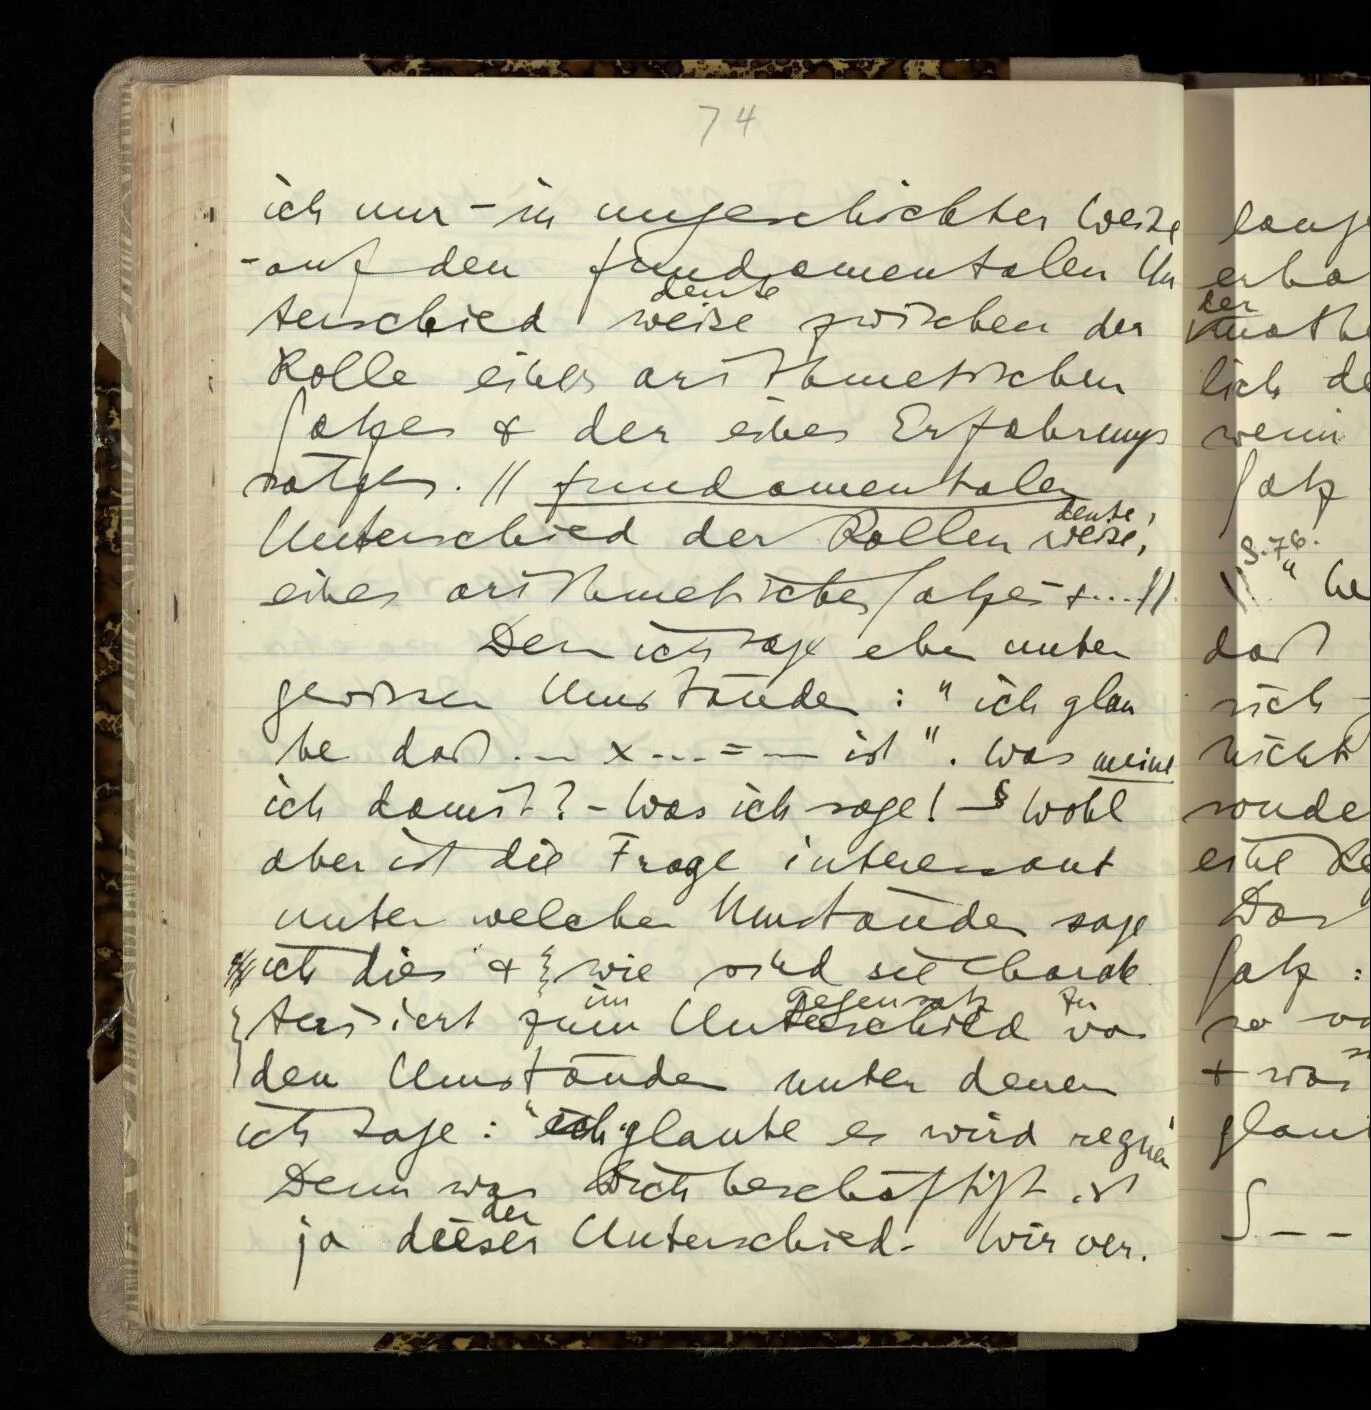 74
ich nur – in ungeschickter Weise
– auf den fundamentalen Un
deute
terschied weise zwischen der
Rolle eines arithmetischen
Satzes & der eines Erfahrungs
satzes. // fundamentalen
deute,
Unterschied der Rollen weise,
eines arithmetischen Satzes & .... //
Denn ich sage eben unter
gewissen Umständen : " ich glau
be daß ... x ... = ... ist ". Was meine
ich damit? – Was ich sage! – § Wohl
aber ist die Frage interessant
unter welchen Umständen sage
ich dies & wie sind sie charak
im Gegensatz zu
terisiert zum Unterschied von
den Umständen unter denen
ich sage : " ich glaube es wird regnen"
Denn was mich beschäftigt ist
der
ja dieser Unterschied. Wir ver.
lang
erha
der
mathe
lich de
wenn
Satz
S. 76.
daß
sich
nicht
sonde
eine Re
Das
Satz :
so
+ was
glau
S – –